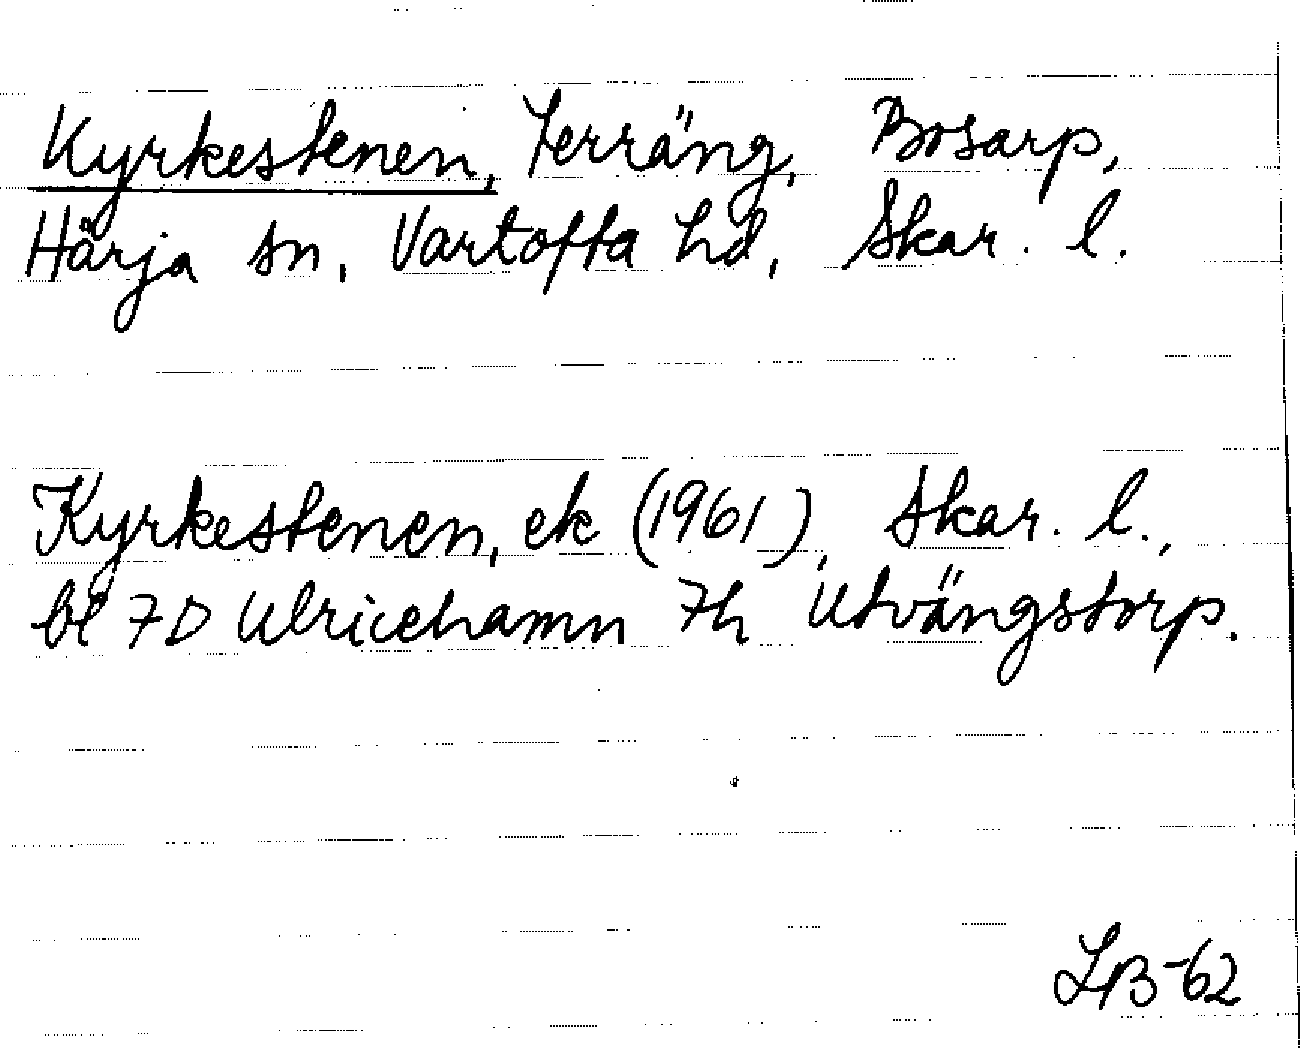 Kyrkestenen, Terräng, Bosarp,
Hårja sn, Vartofta hd, Skar. l.
Kyrkestenen, ek (1961), Skar. l.,
bl 7D Ulricehamn 7h Utvängstorp.
LB-62